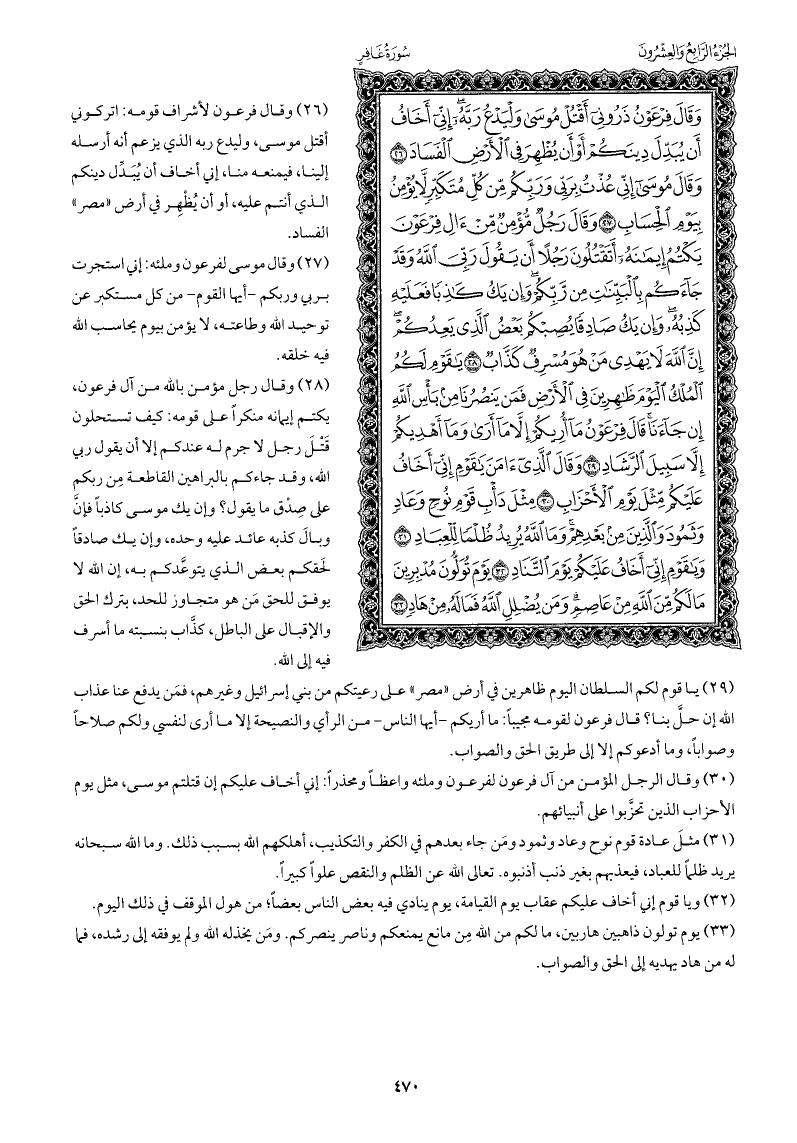 الجزء الرابع والعشرون
سورة غافر
وَقَالَ فِرْعَوْنُ ذَرُونِىٓ أَقْتُلْ مُوسَىٰ وَلْيَدْعُ رَبَّهُۥٓ ۖ إِنِّىٓ أَخَافُ
أَن يُبَدِّلَ دِينَكُمْ أَوْ أَن يُظْهِرَ فِى ٱلْأَرْضِ ٱلْفَسَادَ ٢٦
وَقَالَ مُوسَىٰٓ إِنِّى عُذْتُ بِرَبِّى وَرَبِّكُم مِّن كُلِّ مُتَكَبِّرٍ لَّا يُؤْمِنُ
بِيَوْمِ ٱلْحِسَابِ ٢٧ وَقَالَ رَجُلٌ مُّؤْمِنٌ مِّنْ ءَالِ فِرْعَوْنَ
يَكْتُمُ إِيمَٰنَهُۥٓ أَتَقْتُلُونَ رَجُلًا أَن يَقُولَ رَبِّىَ ٱللَّهُ وَقَدْ
جَآءَكُم بِٱلْبَيِّنَٰتِ مِن رَّبِّكُمْ ۖ وَإِن يَكُ كَٰذِبًا فَعَلَيْهِ
كَذِبُهُۥ ۖ وَإِن يَكُ صَادِقًا يُصِبْكُم بَعْضُ ٱلَّذِى يَعِدُكُمْ ۖ
إِنَّ ٱللَّهَ لَا يَهْدِى مَنْ هُوَ مُسْرِفٌ كَذَّابٌ ٢٨ يَٰقَوْمِ لَكُمُ
ٱلْمُلْكُ ٱلْيَوْمَ ظَٰهِرِينَ فِى ٱلْأَرْضِ فَمَن يَنصُرُنَا مِنۢ بَأْسِ ٱللَّهِ
إِن جَآءَنَا ۚ قَالَ فِرْعَوْنُ مَآ أُرِيكُمْ إِلَّا مَآ أَرَىٰ وَمَآ أَهْدِيكُمْ
إِلَّا سَبِيلَ ٱلرَّشَادِ ٢٩ وَقَالَ ٱلَّذِىٓ ءَامَنَ يَٰقَوْمِ إِنِّىٓ أَخَافُ
عَلَيْكُم مِّثْلَ يَوْمِ ٱلْأَحْزَابِ ٣٠ مِثْلَ دَأْبِ قَوْمِ نُوحٍ وَعَادٍ
وَثَمُودَ وَٱلَّذِينَ مِنۢ بَعْدِهِمْ ۚ وَمَا ٱللَّهُ يُرِيدُ ظُلْمًا لِّلْعِبَادِ ٣١
وَيَٰقَوْمِ إِنِّىٓ أَخَافُ عَلَيْكُمْ يَوْمَ ٱلتَّنَادِ ٣٢ يَوْمَ تُوَلُّونَ مُدْبِرِينَ
مَا لَكُم مِّنَ ٱللَّهِ مِنْ عَاصِمٍ ۗ وَمَن يُضْلِلِ ٱللَّهُ فَمَا لَهُۥ مِنْ هَادٍ ٣٣
(٢٦) وقال فرعون لأشراف قومه: اتركوني
أقتل موسى، وليدع ربه الذي يزعم أنه أرسله
إلينا، فيمنعه منا، إني أخاف أن يُبَدِّل دينكم
الذي أنتم عليه، أو أن يُظْهِر في أرض «مصر»
الفساد.
(٢٧) وقال موسى لفرعون وملئه: إني استجرت
بربي وربكم -أيها القوم- من كل مستكبر عن
توحيد الله وطاعته، لا يؤمن بيوم يحاسب الله
فيه خلقه.
(٢٨) وقال رجل مؤمن بالله من آل فرعون،
يكتم إيمانه منكراً على قومه: كيف تستحلون
قَتْلَ رجل لا جرم له عندكم إلا أن يقول ربي
الله، وقد جاءكم بالبراهين القاطعة مِن ربكم
على صِدْق ما يقول؟ وإن يك موسى كاذباً فإنَّ
وبالَ كذبه عائد عليه وحده، وإن يك صادقاً
لَحقكم بعض الذي يتوعَّدكم به، إن الله لا
يوفق للحق مَن هو متجاوز للحد، بترك الحق
والإقبال على الباطل، كذَّاب بنسبته ما أسرف
فيه إلى الله.
(٢٩) يا قوم لكم السلطان اليوم ظاهرين في أرض «مصر» على رعيتكم من بني إسرائيل وغيرهم، فمَن يدفع عنا عذاب
الله إن حلَّ بنا؟ قال فرعون لقومه مجيباً: ما أريكم -أيها الناس- من الرأي والنصيحة إلا ما أرى لنفسي ولكم صلاحاً
وصواباً، وما أدعوكم إلا إلى طريق الحق والصواب.
(٣٠) وقال الرجل المؤمن من آل فرعون لفرعون وملئه واعظاً ومحذراً: إني أخاف عليكم إن قتلتم موسى، مثل يوم
الأحزاب الذين تحزَّبوا على أنبيائهم.
(٣١) مثلَ عادة قوم نوح وعاد وثمود ومَن جاء بعدهم في الكفر والتكذيب، أهلكهم الله بسبب ذلك. وما الله سبحانه
يريد ظلماً للعباد، فيعذبهم بغير ذنب أذنبوه. تعالى الله عن الظلم والنقص علواً كبيراً.
(٣٢) ويا قوم إني أخاف عليكم عقاب يوم القيامة، يوم ينادي فيه بعض الناس بعضاً؛ من هول الموقف في ذلك اليوم.
(٣٣) يوم تولون ذاهبين هاربين، ما لكم من الله مِن مانع يمنعكم وناصر ينصركم. ومَن يخذله الله ولم يوفقه إلى رشده، فما
له من هاد يهديه إلى الحق والصواب.
٤٧٠